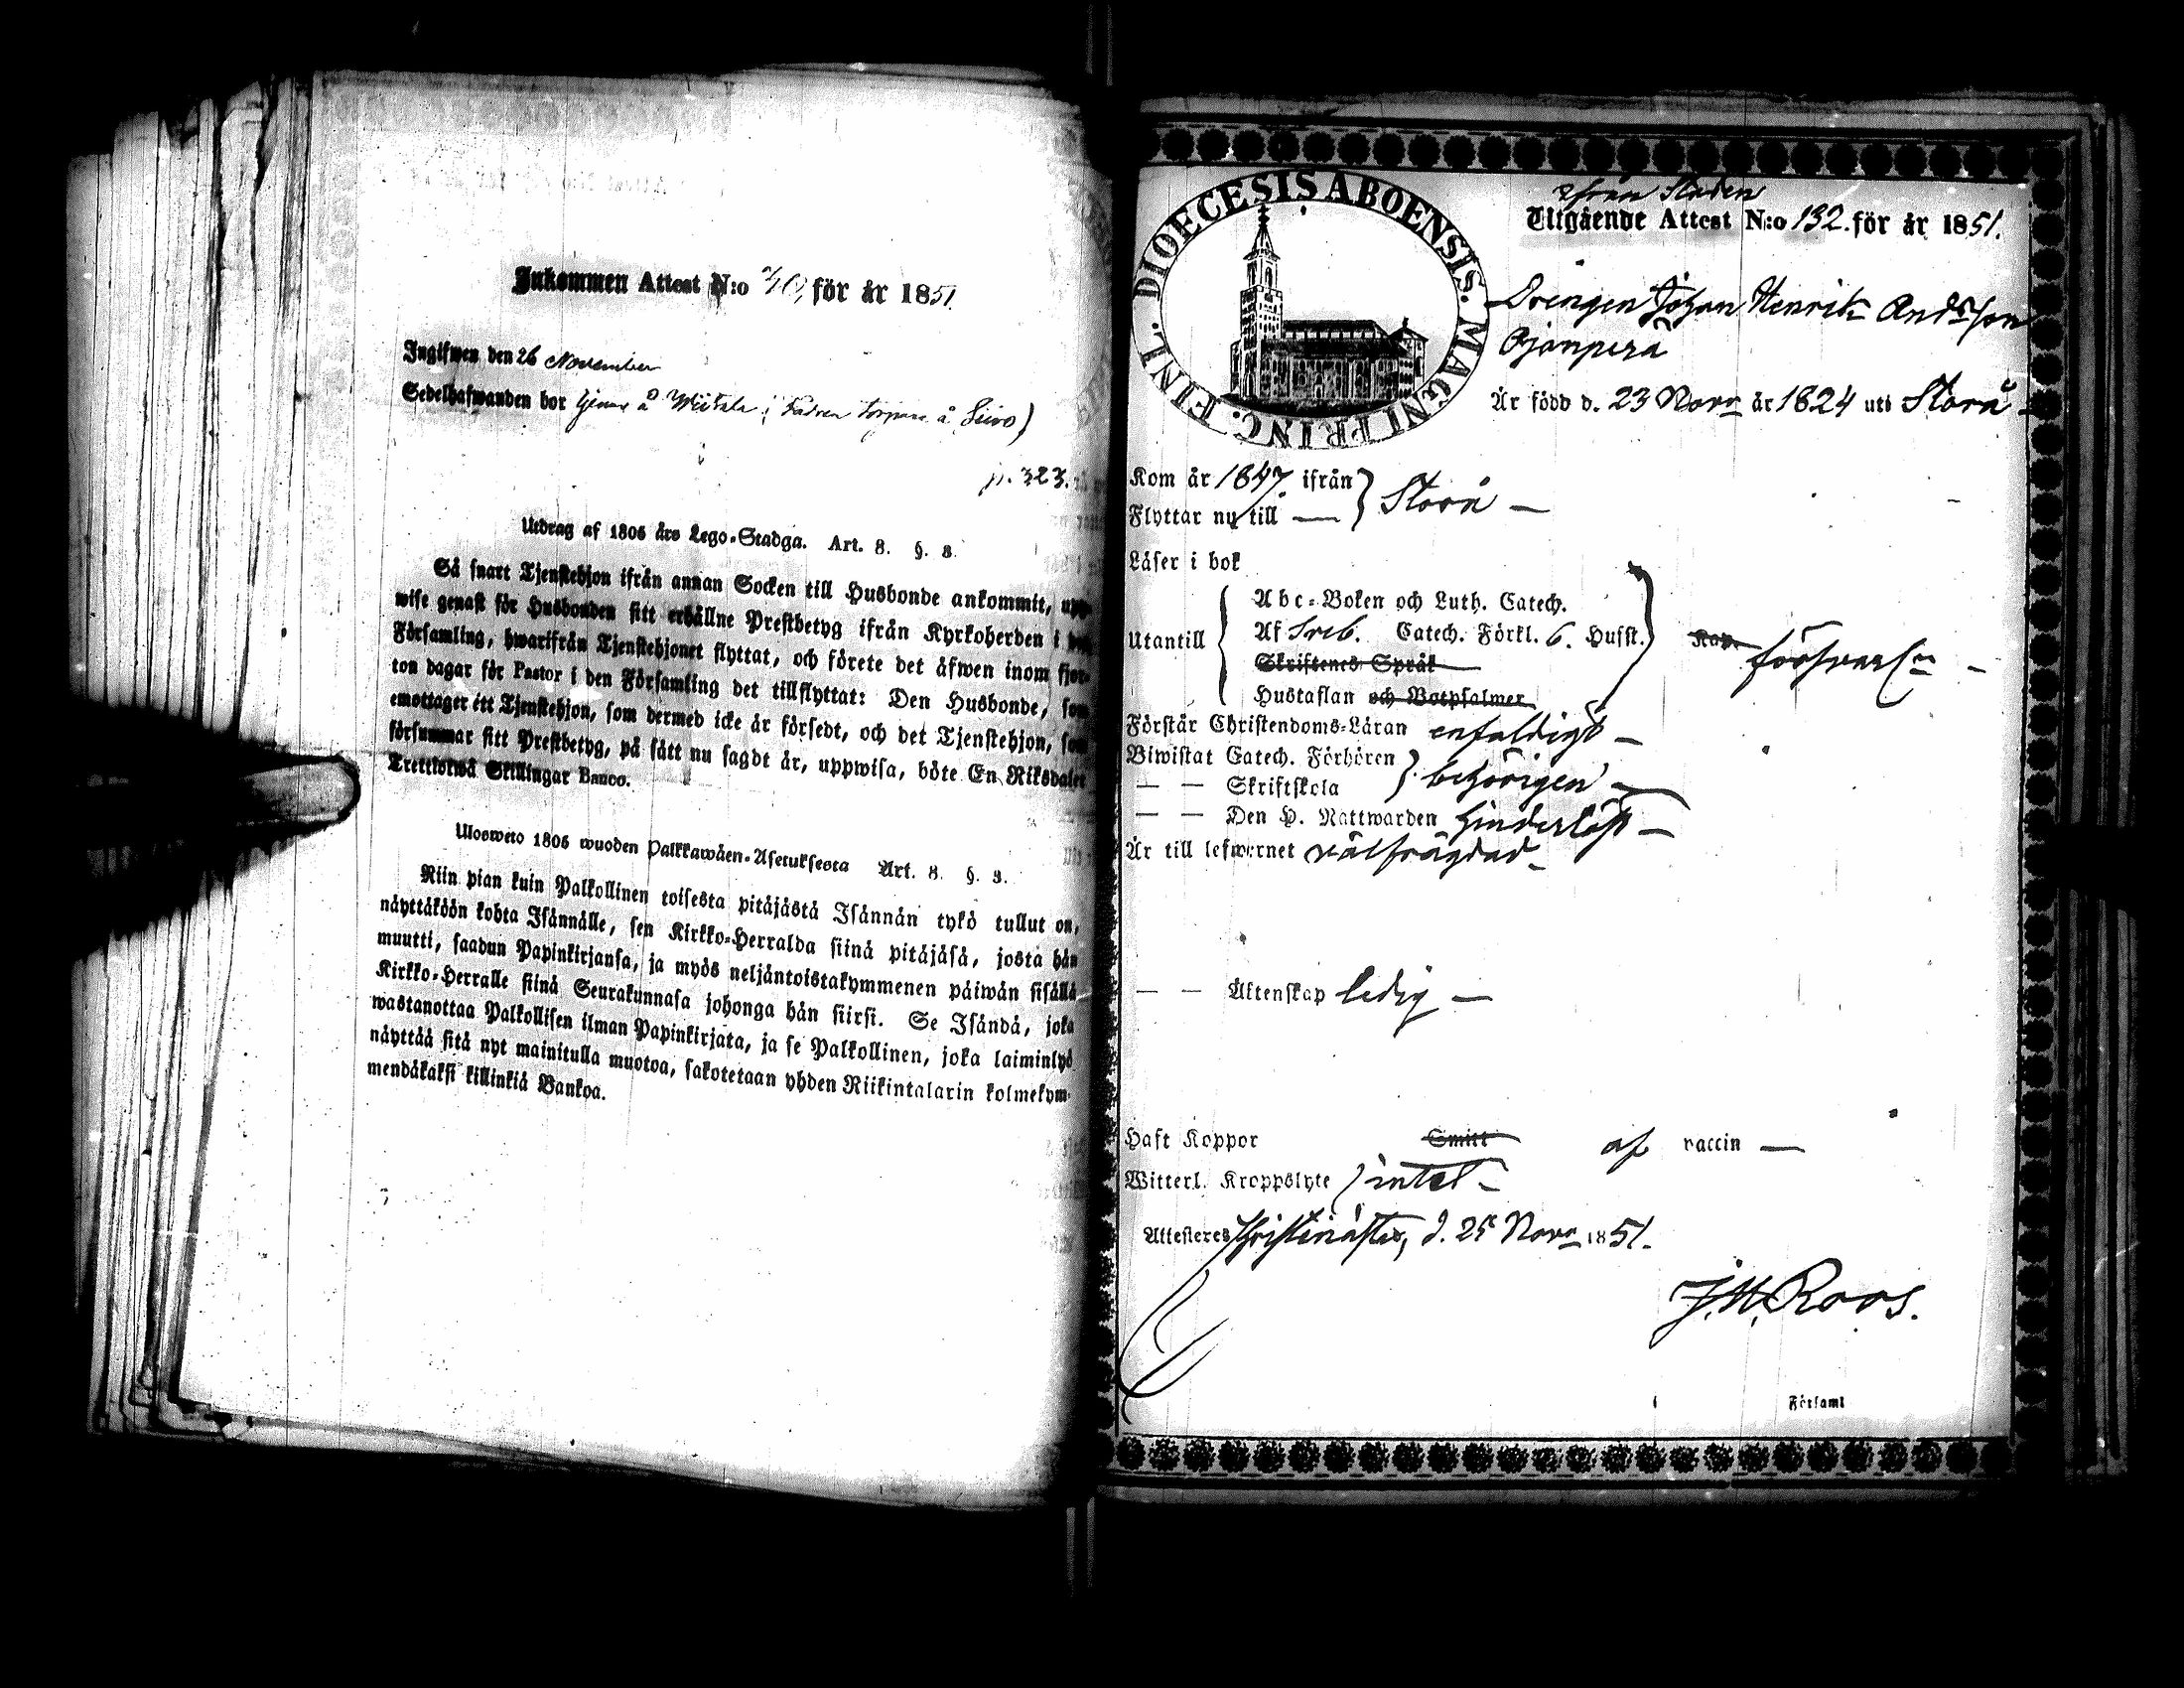 Inkommen Attest N:o 40, för år 1851.
Ingifwen den 26 November
Sedelhafwanden bor hemma å Wiitala i Fadren torpare å Leivo)
p. 323.
Utdrag af 1805 års Lego-Stadga. Art. 8. §. 3.
Så snart Tjenstehjon ifrån annan Socken till Husbonde ankommit, upp-
wise genast för Husbonden sitt erhållne Prestbetyg ifrån Kyrkoherden i
Församling, hwarifrån Tjenstehjonet flyttat, och förete det äfwen inom fjor-
ton dagar för Pastor i den Församling det tillflyttat: Den Husbonde, som
emottager ett Tjenstehjon, som dermed icke är försedt, och det Tjenstehjon, som
försummar sitt Prestbetyg, på sätt nu sagdt är, uppwisa, böte En Riksdaler
Trettiotwå Skillingar Banco.
Uloswoto 1805 wuoden Palkkawäen-Asetuksesta Art. 8. §. 3.
Niin pian kuin Palkollinen toisesta pitäjästä Isännän tykö tullut on,
näyttäköön kohta Isännälle, sen Kirkko-Herralda siinä pitäjäsä, josta hän
muutti, saadun Papinkirjansa, ja myös neljäntoistakymmenen päiwän sisällä
Kirkko-Herralle siinä Seurakunnasa johonga hän siirsi. Se Isändä, joka
wastanottaa Palkollisen ilman Papinkirjata, ja se Palkollinen, joka laiminlyö
näyttää sitä nyt mainitulla muotoa, sakotetaan yhden Riikintalarin kolmekym-
mendäkaksi killinkiä Bankoa.
DIOECESIS ABOENSIS. MAGNI PRINC. FINL.
Ifrån Staden
Utgående Attest N:o 132. för år 1851.
Drengen Johan Henrik Andsson
Ojanperä
Är född d. 23 Novr år 1824 uti Storå
Kom år 1847 ifrån
Flyttar nu till — } Storå —
Läser i bok
Utantill
Abc-Boken och Luth. Catech.
Af Sveb. Catech. Förkl. 6. Husst.
Skriftenes Språk
Hustaflan och Botpsalmer
försvarln —
Förstår Christendoms-Läran enfaldigt —
Biwistat Catech. Förhören
— — Skriftskola } behörigen —
— — Den H. Nattwarden hinderlöst —
Är till lefwernet välfrägdad —
— — Äktenskap ledig —
Haft Koppor Smitt af vaccin —
Witterl. Kroppslyte intet —
Attesteres Christinæstad, d. 25 Novr 1851.
J. H. Roos.
Församl